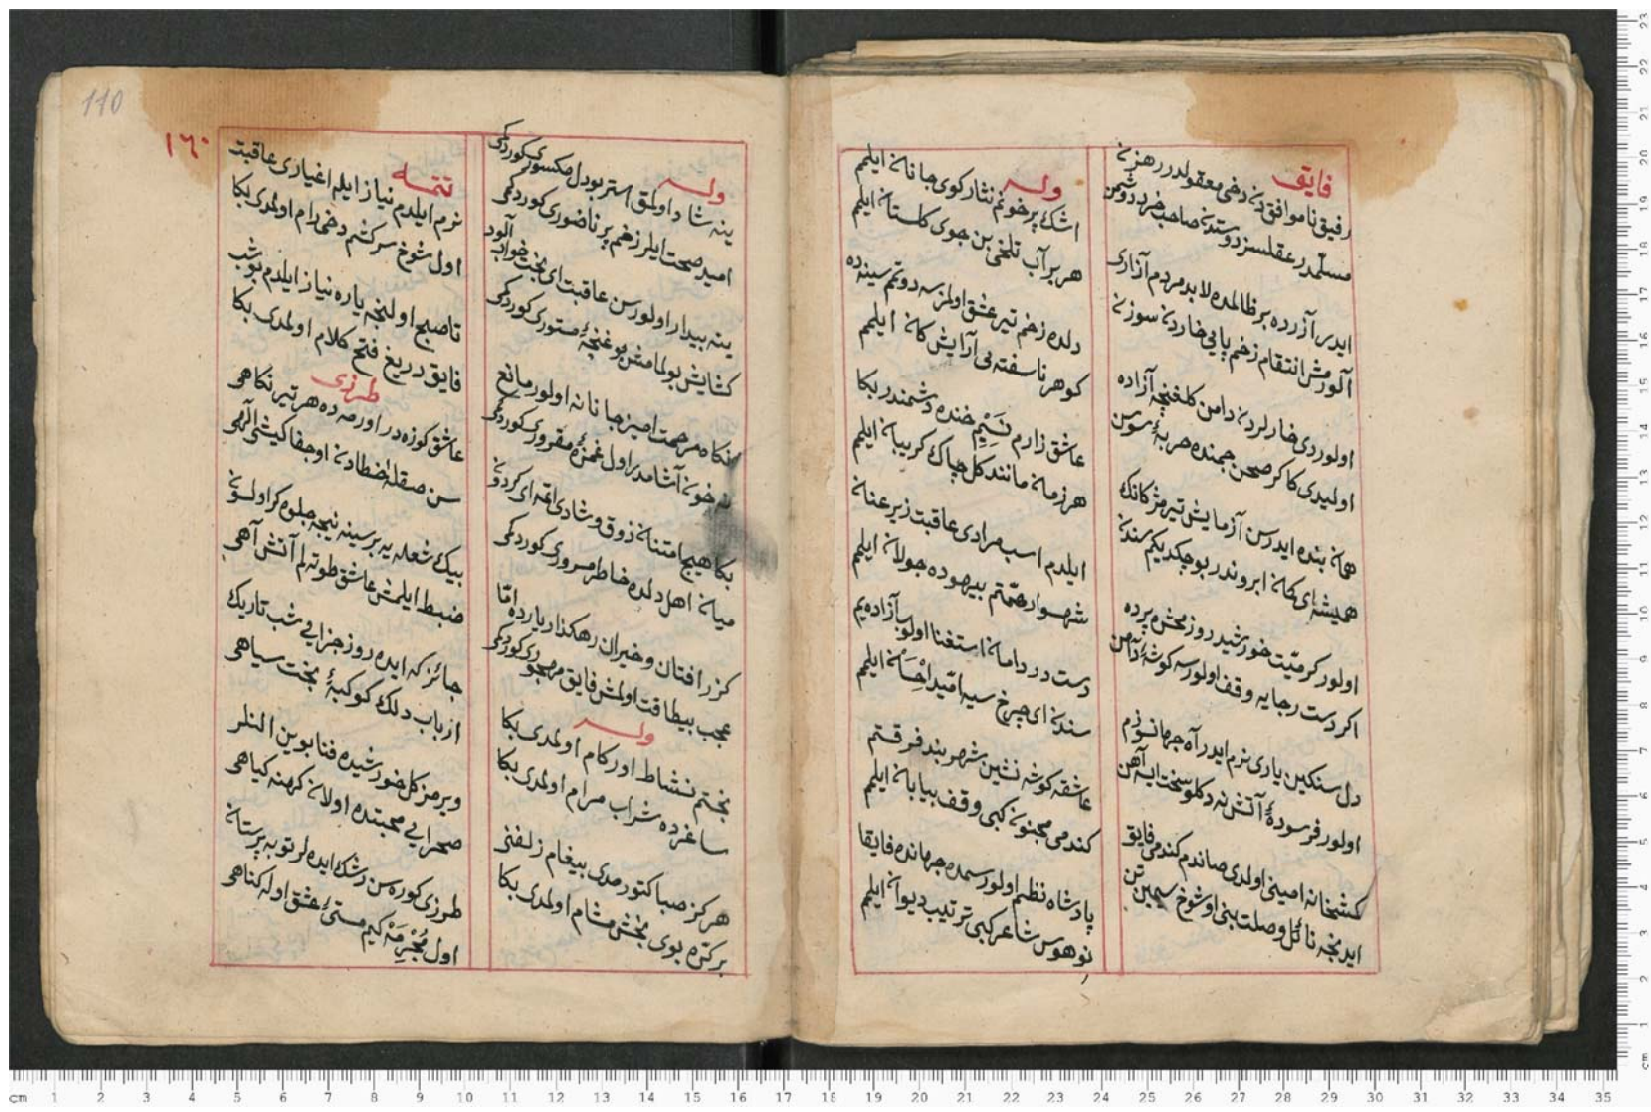 فايق
رفيق ناموافق دن دخی معقولدر رهزن
مسلّمدر عقلسز دوستدن صاحب خرد دشمن
ايدر آزرده بر ظالمده لابد مردم آزاری
آلورمش انتقام زخم پايی خاردن سوزن
اولوردی خارلردن دامن کلغنچه آزاده
اوليدی کاکر صحن چمنده حربهٔ سوسن
همان بنده ايدرسن آزمايش تير مژکانک
هميشه ای کمان ابرو ندر بو چکديکم سندن
اولور کرميّت خورشيد روز محشره پرده
اکر دست رجايه وقف اولورسه کوشهٔ دامن
دل سنکين ياری نرم ايدر آه جهانسوزم
اولور فرسودهٔ آتش نه دکلو سخت ايسه آهن
کشمخانه امينی اولدی صاندم کندمی فايق
ايدنجه نائل وصلت بنی او شوخ سيمين تن
وله
اشک پر خونم نثار کوی جانان ايلمم
هر بر آب تلخی بن جوی کلستان ايلمم
دلده زخم تير عشق اولمزسه دوتم سينه ده
کوهر ناسفته يی آرايش کان ايلمم
عاشق زارم نسيم خنده دشمندر بکا
هر زمان مانند کل چاک کريبان ايلمم
ايلدم اسب مرادی عاقبت زير عنان
شهسوار همّتم بيهوده جولان ايلمم
دست در دامان استغنا اولوب آزاده يم
سندن ای چرخ سيه اميد احسان ايلمم
عاشقه کوشه نشين شهر بند فرقتم
کندمی مجنون کبی وقف بيابان ايلمم
پادشاه نظم اولورسمده جهانده فايقا
نوهوس شاعر کبی ترتيب ديوان ايلمم
110
١٦٠
وله
ينه شاد اولمق استر بو دل مکسوری کوردکمی
اميد صحت ايلر زخم پر ناصوری کوردکمی
ينه بيدار اولورسن عاقبت ای بخت خواب آلود
کشايش بولمامش بو غنچهٔ مستوری کوردکمی
نکاه مرحمت اميز جانانه اولور مانع
نه خون آشامدر اول غمزهٔ مغروری کوردکمی
بکا هيچ امتنان ذوق وشادی ايتمه ای کردون
ميان اهل دلده خاطر مسروری کوردکمی
کزر افتان وخيزان رهکذار يارده امّا
عجب بيطاقت اولمش فايق مهجوری کوردکمی
وله
بختم نشاط اور کام اولمدی بکا
ساغرده شراب مرام اولمدی بکا
هرکز صبا کتورمدی پيغام زلفنی
برکرّه بوی بخش مشام اولمدی بکا
تتمه
نرم ايلدم نياز ايله اغياری عاقبت
اول شوخ سرکشم دخی رام اولمدی بکا
تا صبح اولنجه ياره نياز ايلدم بو شب
فايق دريغ فتح کلام اولمدی بکا
طرزی
عاشق کوزه در اورمه ده هر تير نکاهی
سن صقله خطادن او جفا کيشی الٓهی
بيک شعله يه بر سينه نيجه جلوه کر اولسون
ضبط ايلمش عاشق طوته لم آتش آهی
جائز که ايده روز جزايی شب تاريک
ارباب دلک کوکبهٔ بخت سياهی
ويرمز کل خورشيده فنا بوين النلر
صحرايی محبتده اولان کهنه کياهی
طرزی کوره سن رشک ايده لر توبه پرستان
اول مجرمه کيم مستیٔ عشق اوله کناهی